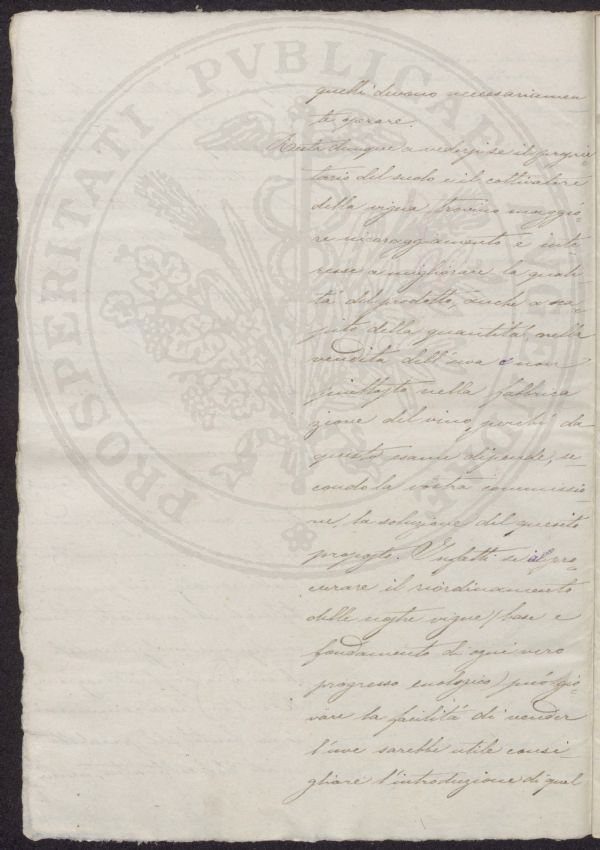 PROSPERITATI PVBLICAE AVGENDAE
quelli devono necessariamen
te operare.
Resta dunque a vedersi se il proprie
tario del suolo e il coltivatore
della vigna trovino maggio
re incoraggiamento e inte
resse a migliorare la quali
tà del prodotto, anche a sca
pito della quantità, nella
vendita dell'uva e non
piuttosto nella fabbrica
zione del vino, perché da
questo esame dipende, se
condo la vostra commissio
ne, la soluzione del quesito
proposto. Infatti se al pro
curare il riordinamento
delle nostre vigne (base e
fondamento di ogni vero
progresso enologico) può gio
vare la facilità di vender
l'uve sarebbe utile consi
gliare l'introduzione di quel